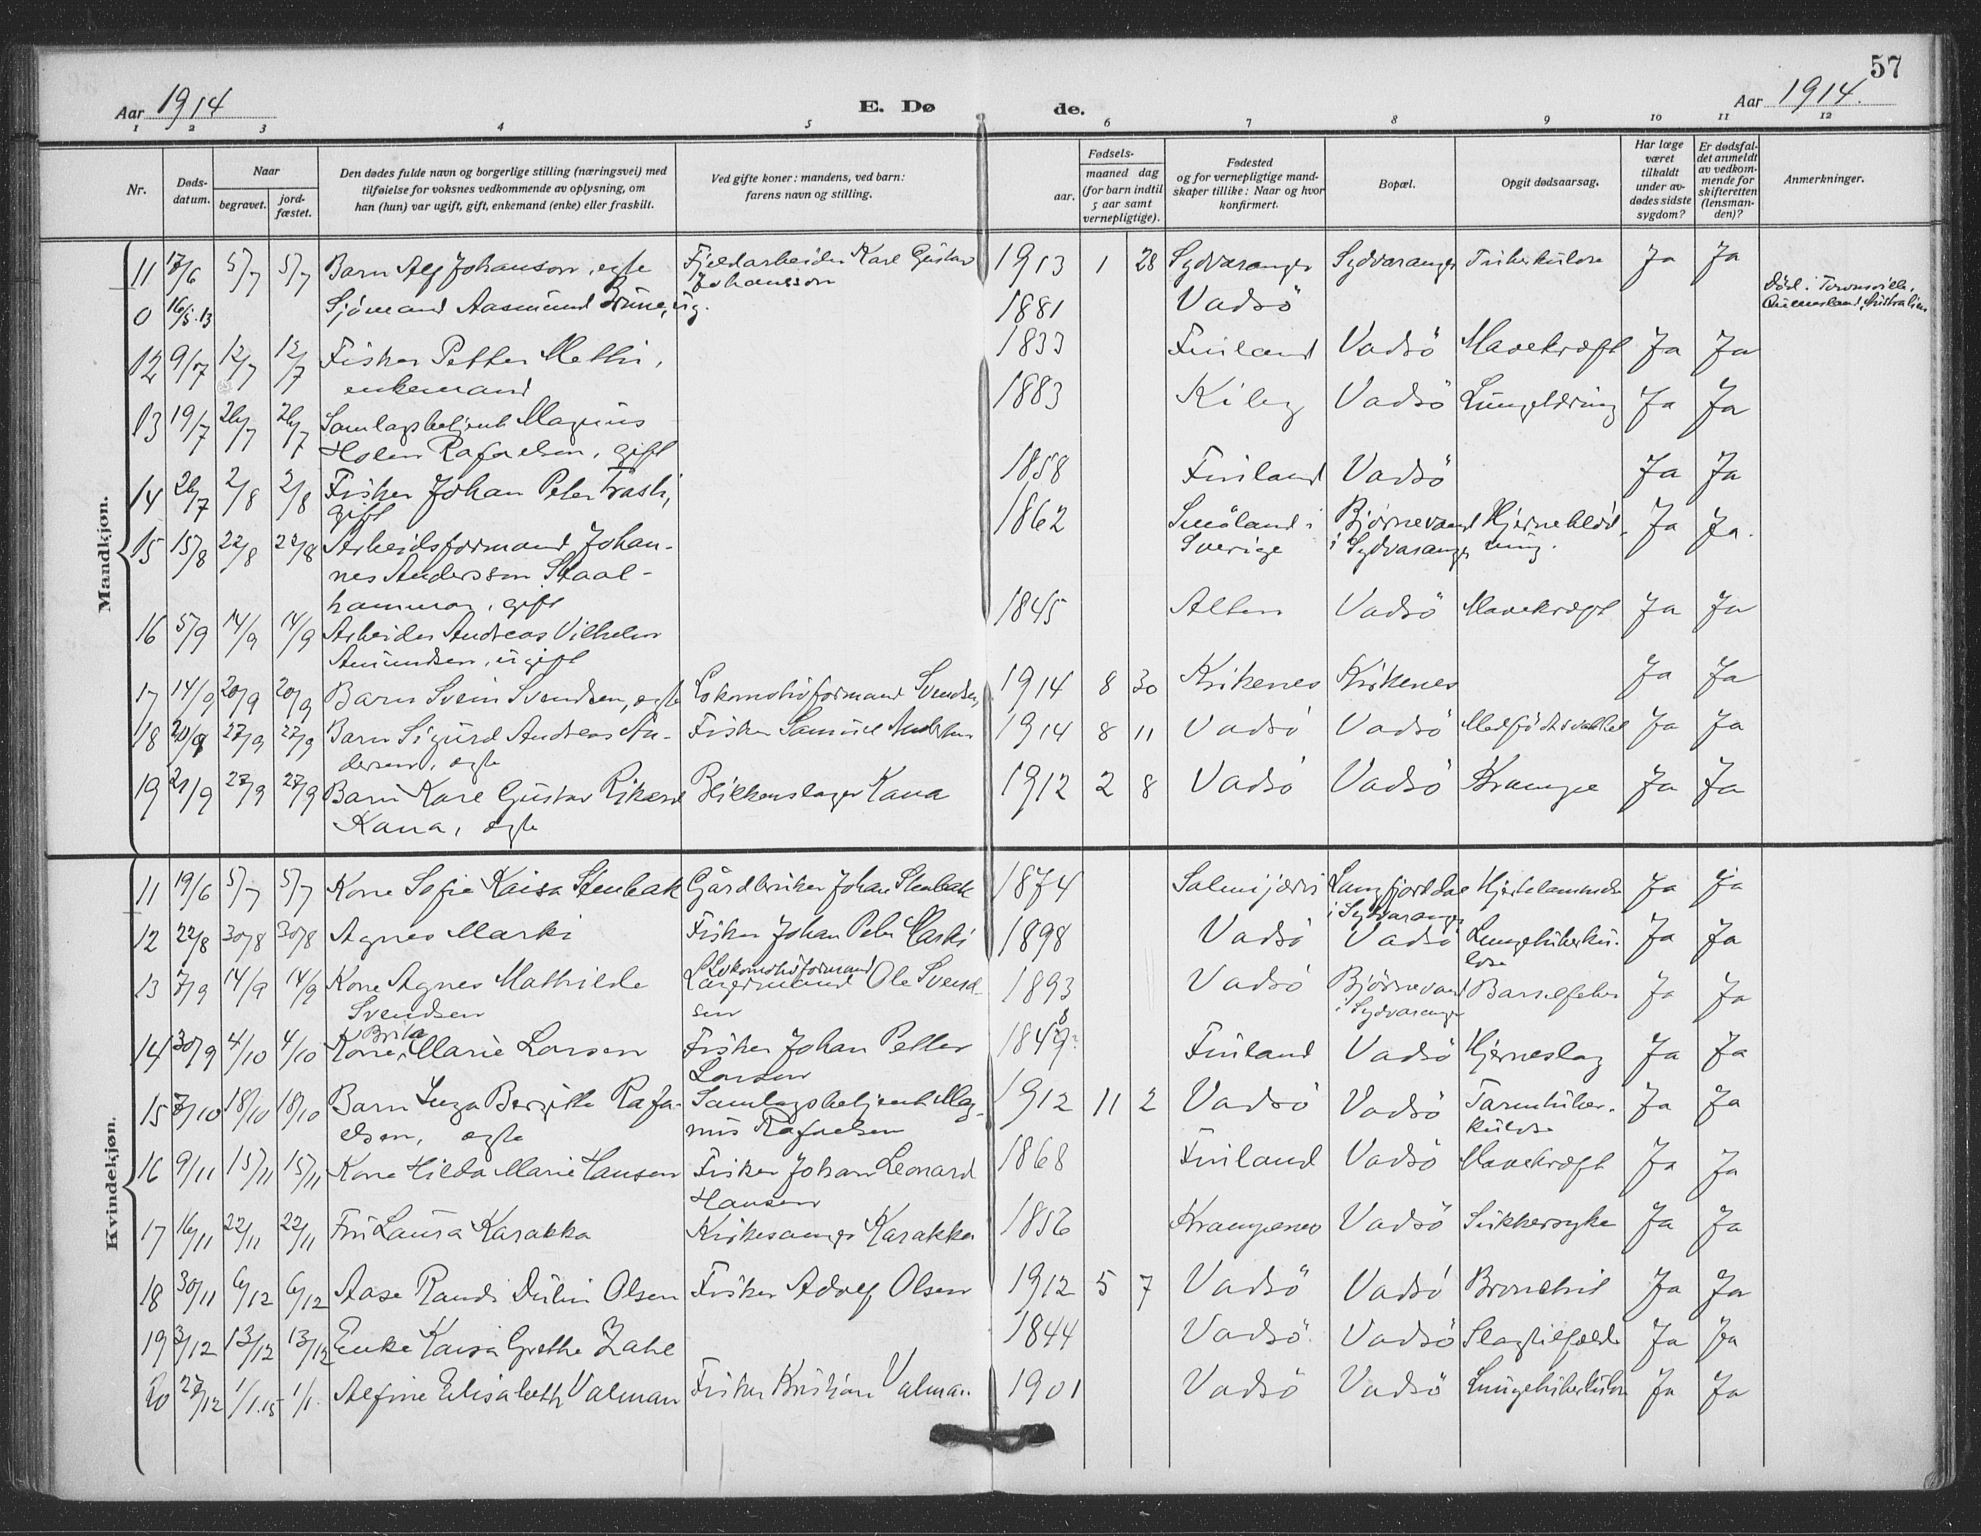 57
Aar 1914
E. Dø
de.
Aar 1914.
1 2 3 4 5 6 7 8 9 10 11 12
Nr.
Døds-
datum.
Naar
begravet.
jord-
fæstet.
Den dødes fulde navn og borgerlige stilling (næringsvei) med
tilføielse for voksnes vedkommende av oplysning, om
han (hun) var ugift, gift, enkemand (enke) eller fraskilt.
Ved gifte koner: mandens, ved barn:
farens navn og stilling.
Fødsels-
aar.
maaned dag
(for barn indtil
5 aar samt
vernepligtige).
Fødested
og for vernepligtige mand-
skaper tillike: Naar og hvor
konfirmert.
Bopæl.
Opgit dødsaarsag.
Har læge
været
tilkaldt
under av-
dødes sidste
sygdom?
Er dødsfal-
det anmeldt
av vedkom-
mende for
skifteretten
(lensman-
den)?
Anmerkninger.
Mandkjøn.
11 17/6 5/7 5/7 Barn Alf Johanson, egte Fjeldarbeider Karl Gustav 1913 1 28 Sydvaranger Sydvaranger Tuberkulose Ja Ja
Johansson
0 16/5.13 Sjømand Aasmund Brune, ug. 1881 Vadsö Død i Townsville,
Queensland, Australien
12 9/7 12/7 12/7 Fisker Petter Mathi, 1833 Finland Vadsö Mavekræft Ja Ja
enkemand
13 19/7 26/7 26/7 Samlagsbetjent Magnus 1883 Kiby Vadsö Lungeblødning Ja Ja
Holm Rafaelsen, gift
14 26/7 2/8 2/8 Fisker Johan Peter 1858 Finland Vadsö Ja Ja
gift
15 15/8 22/8 22/8 Arbeidsformand Johan- 1862 Smöland i Bjørnevand Hjerneblød- Ja Ja.
nes Andersson Staal- Sverige i Sydvaranger ning.
hammar, gift
16 5/9 14/9 14/9 Arbeider Andreas Vilhelm 1845 Alten Vadsö Mavekræft Ja Ja
Amundsen, ugift
17 14/9 20/9 20/9 Barn Svein Svendsen, egte Lokomotivformand Svendsen, 1914 8 30 Kirkenes Kirkenes Ja Ja
18 20/9 27/9 27/9 Barn Sigurd Andreas An- Fisker Samuel Andersen 1914 8 11 Vadsö Vadsö Medfødt svakhet Ja Ja
dersen, egte
19 21/9 27/9 27/9 Barn Karl Gustav Rikard Blikkenslager Kana 1912 2 8 Vadsö Vadsö Krampe Ja Ja
Kana, egte
Kvindekjøn.
11 19/6 5/7 5/7 Kone Sofie Kaisa Stenbak Gårdbruker Johan Stenbak 1874 Salmijærvi Langfjorddal Hjertelammelse Ja ja
i Sydvaranger
12 22/8 30/8 30/8 Agnes Marki Fisker Johan Peter Marki 1898 Vadsö Vadsö Lungetuberku-
lose Ja Ja
Lokomotivformand
13 7/9 14/9 14/9 Kone Agnes Mathilde Ole Svend- 1893 Vadsö Bjørnevand Barselfeber Ja Ja
Svendsen sen i Sydvaranger
Brita 8
14 30/9 4/10 4/10 Kone Marie Larsen Fisker Johan Petter 1849 Finland Vadsö Hjerneslag Ja Ja
Larsen
15 7/10 18/10 18/10 Barn Inga Bergitte Rafa- Samlagsbetjent Mag- 1912 11 2 Vadsö Vadsö Tarmtuber- Ja Ja
elsen, egte nus Rafaelsen kulose
16 9/11 15/11 15/11 Kone Hilda Marie Hansen Fisker Johan Leonard 1868 Finland Vadsö Mavekræft Ja Ja
Hansen
17 16/11 22/11 22/11 Fru Laura Karakka Kirkesanger Karakka 1856 Krampenes Vadsö Sukkersyke Ja Ja
18 30/11 6/12 6/12 Aase Randi Olsen Fisker Adolf Olsen 1912 5 7 Vadsö Vadsö Bronchit Ja Ja
19 3/12 13/12 13/12 Enke Kaisa Grethe Zahl 1844 Vadsö Vadsö Slagtilfælde Ja Ja
20 27/12 1/1.15 1/1. Alfine Elisabeth Valman Fisker Kristian Valman 1901 Vadsö Vadsö Lungetuberkulose Ja Ja